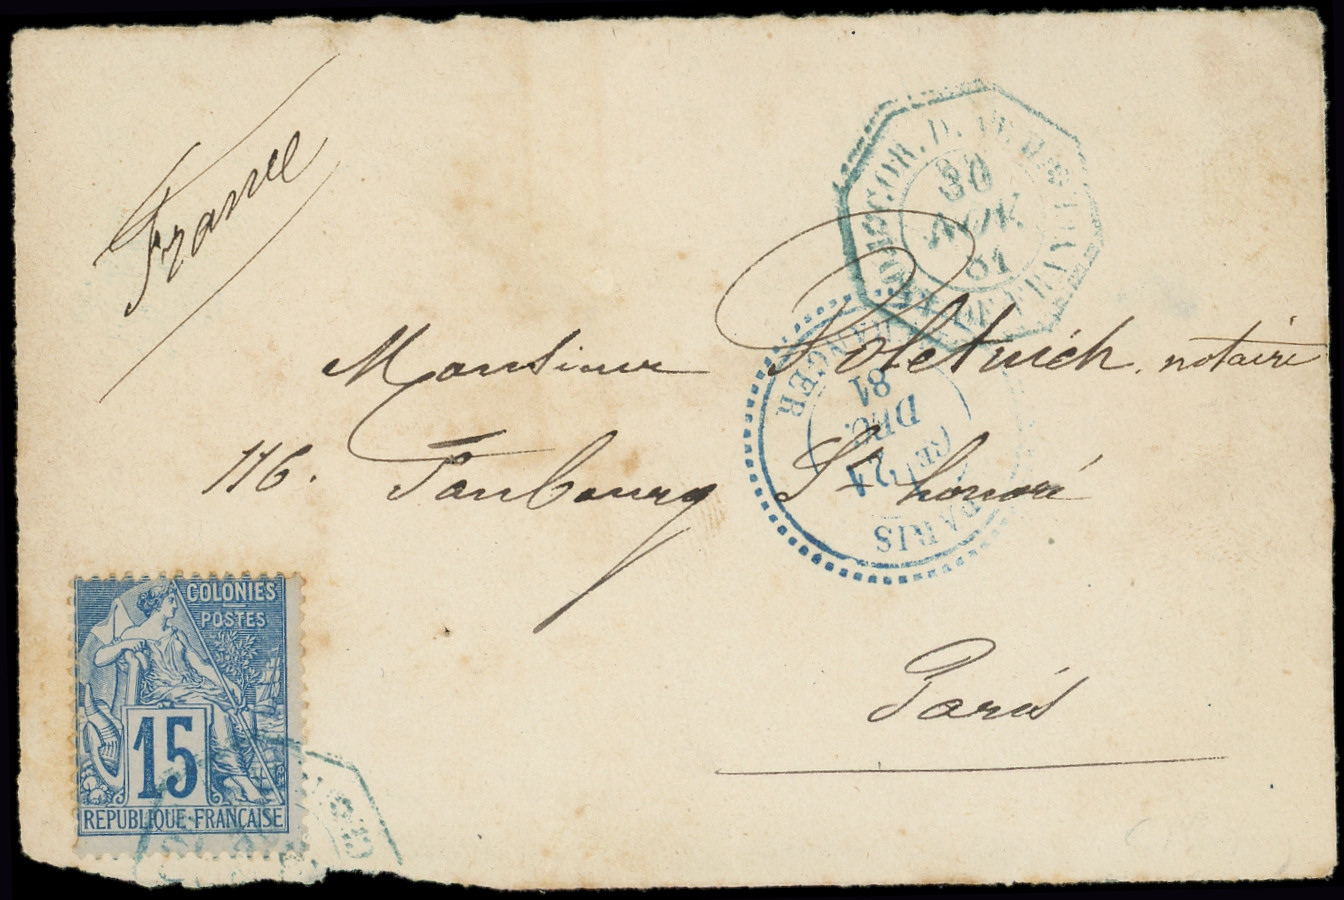 France
30
NOV
81
Monsieur Poletnich, notaire
116. Faubourg St honoré
Paris
ETRANGER
PARIS
21
DEC.
81
COLONIES
POSTES
15
REPUBLIQUE FRANÇAISE